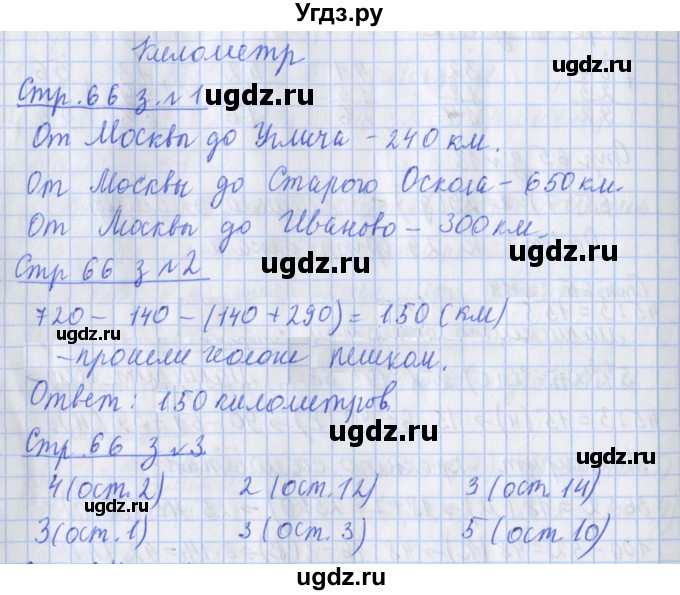 Угдз.ру
Километр
Стр. 66 з. № 1
От Москвы до Углича - 240 км.
От Москвы до Старого Оскола - 650 км.
От Москвы до Иваново - 300 км.
Стр 66 з № 2
720 - 140 - (140 + 290) = 150 (км)
- прошли пешком.
Ответ: 150 километров
Стр. 66 з № 3.
4 (ост. 2) 2 (ост. 12) 3 (ост. 14)
3 (ост. 1) 3 (ост. 3) 5 (ост. 10)
ugdz.ru
ugdz.ru
ugdz.ru
ugdz.ru
ugdz.ru
ugdz.ru
ugdz.ru
ugdz.ru
ugdz.ru
ugdz.ru
ugdz.ru